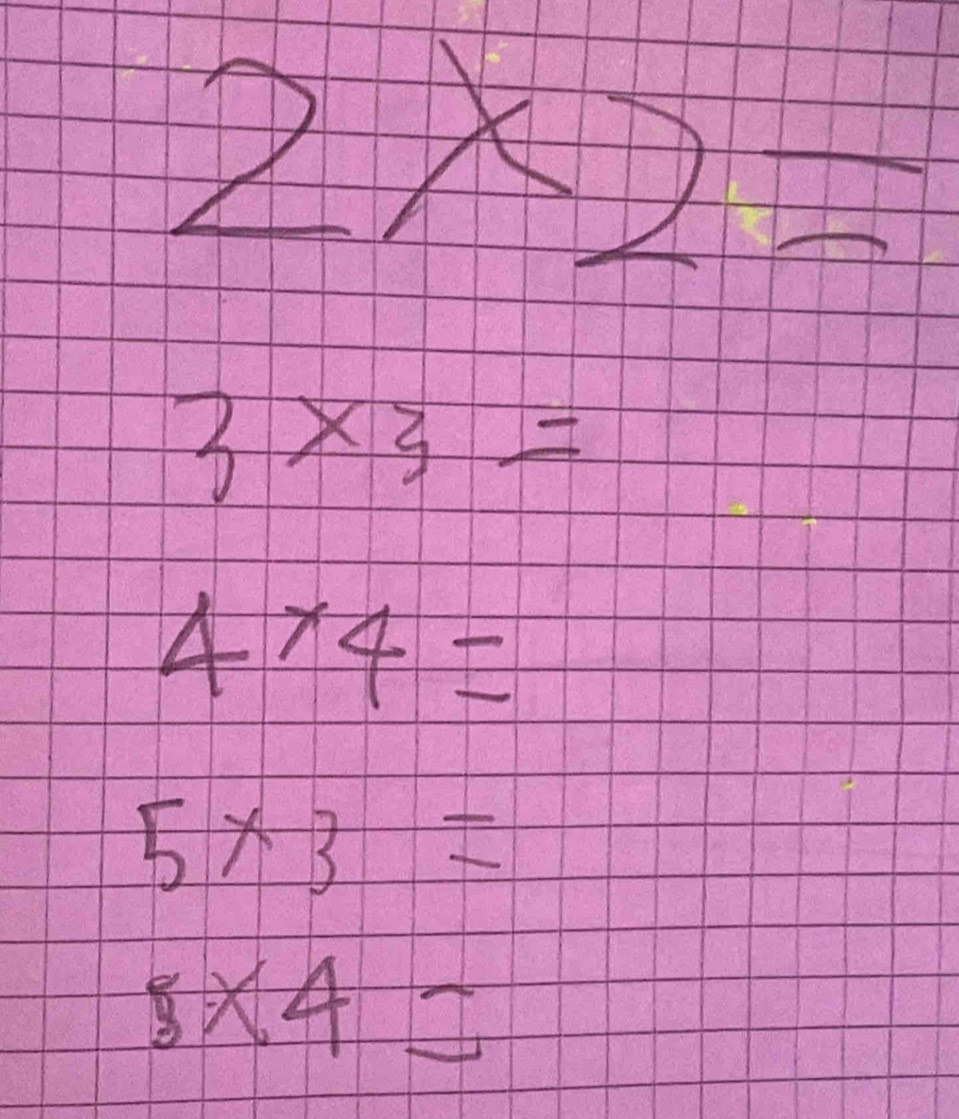 2 × 2 =
3 × 3 =
4 × 4 =
5 × 3 =
× 4 =